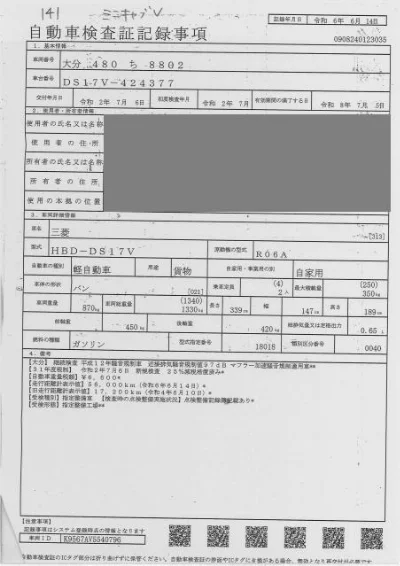 141 ミニキャブV
記録年月日 令和 6年 6月 14日
自動車検査証記録事項
0908240123035
1. 基本情報
車両番号 大分 480 ち 8802
車台番号 DS17V-424377
交付年月日 令和 2年 7月 6日 初度検査年月 令和 2年 7月 有効期間の満了する日 令和 8年 7月 5日
2. 使用者・所有者情報
使用者の氏名又は名称
使用者の住所
所有者の氏名又は名称
所有者の住所
使用の本拠の位置
3. 車両詳細情報
車名 三菱 [313]
型式 HBD-DS17V 原動機の型式 R06A
自動車の種別 軽自動車 用途 貨物 自家用・事業用の別 自家用
車体の形状 バン [021] 乗車定員 (4) 2人 最大積載量 (250) 350kg
車両重量 870kg 車両総重量 (1340) 1330kg 長さ 339cm 幅 147cm 高さ 189cm
前軸重 450kg 後軸重 420kg 総排気量又は定格出力 0.65 L
燃料の種類 ガソリン 型式指定番号 18016 類別区分番号 0040
4. 備考
【大分】 継続検査 平成12年騒音規制車 近接排気騒音規制値97dB マフラー加速騒音規制適用車**
【31年度税制】 令和2年7月6日 新規検査 25%減税措置済み*
【自動車重量税額】 ¥6,600*
【走行距離計表示値】 36,000km (令和6年6月14日)*
【旧走行距離計表示値】 17,200km (令和4年6月10日)*
【受検種別】 指定整備車 【検査時の点検整備実施状況】 点検整備記録簿記載あり*
【受検形態】 指定整備工場**
【注意事項】
記録事項はシステム登録時点の情報となります
車両ID K9567AV5540796
自動車検査証のICタグ部分は折り曲げずに保管ください。